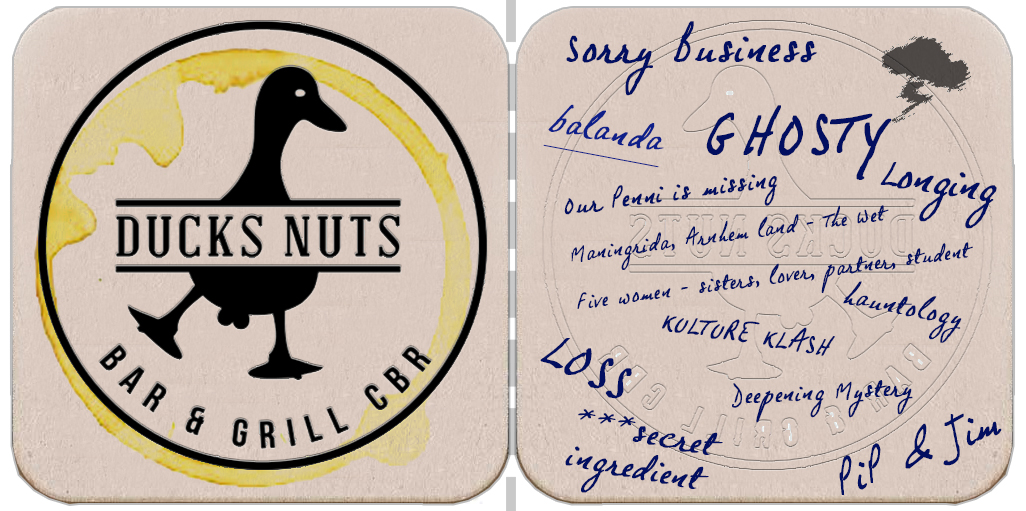 DUCKS NUTS
BAR & GRILL CBR
Sorry Business
balanda
GHOSTY
Longing
Our Penni is missing
Maningrida, Arnhem Land - The Wet
Five women - sisters, lover, partner, student
hauntology
KULTURE KLASH
LOSS
Deepening Mystery
***secret
ingredient
PiP & Jim